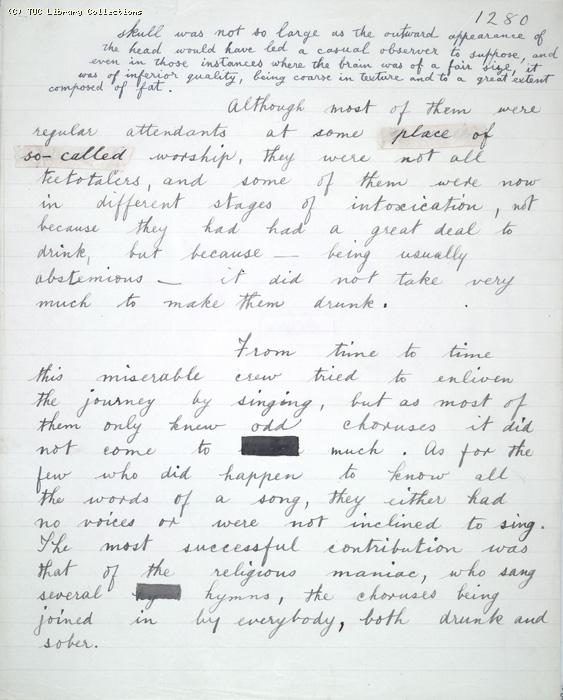 (c) TUC Library Collections
1280
skull was not so large as the outward appearance of
the head would have led a casual observer to suppose, and
even in those instances where the brain was of a fair size, it
was of inferior quality, being coarse in texture and to a great extent
composed of fat.
Although most of them were
regular attendants at some place of
so-called worship, they were not all
teetotalers, and some of them were now
in different stages of intoxication, not
because they had had a great deal to
drink, but because — being usually
abstemious — it did not take very
much to make them drunk.
From time to time
this miserable crew tried to enliven
the journey by singing, but as most of
them only knew odd choruses it did
not come to much. As for the
few who did happen to know all
the words of a song, they either had
no voices or were not inclined to sing.
The most successful contribution was
that of the religious maniac, who sang
several hymns, the choruses being
joined in by everybody, both drunk and
sober.